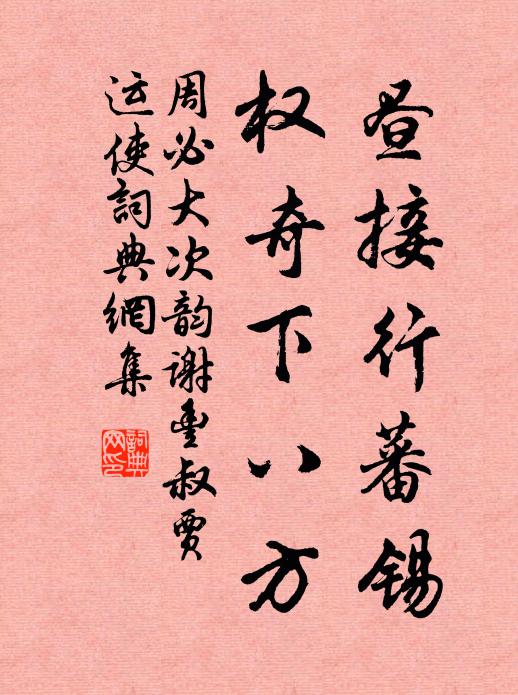 昼接行蕃锡
权奇下八方
周必大次韵谢丰叔贾
运使詞典網集
詞典
网印